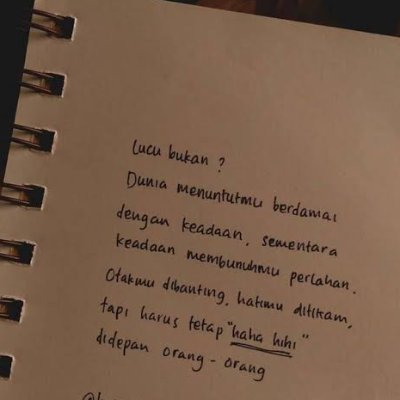 Lucu bukan ?
Dunia menuntutmu berdamai
dengan keadaan, sementara
keadaan membunuhmu perlahan.
Otakmu dibanting, hatimu ditikam,
tapi harus tetap "haha hihi"
didepan orang - orang